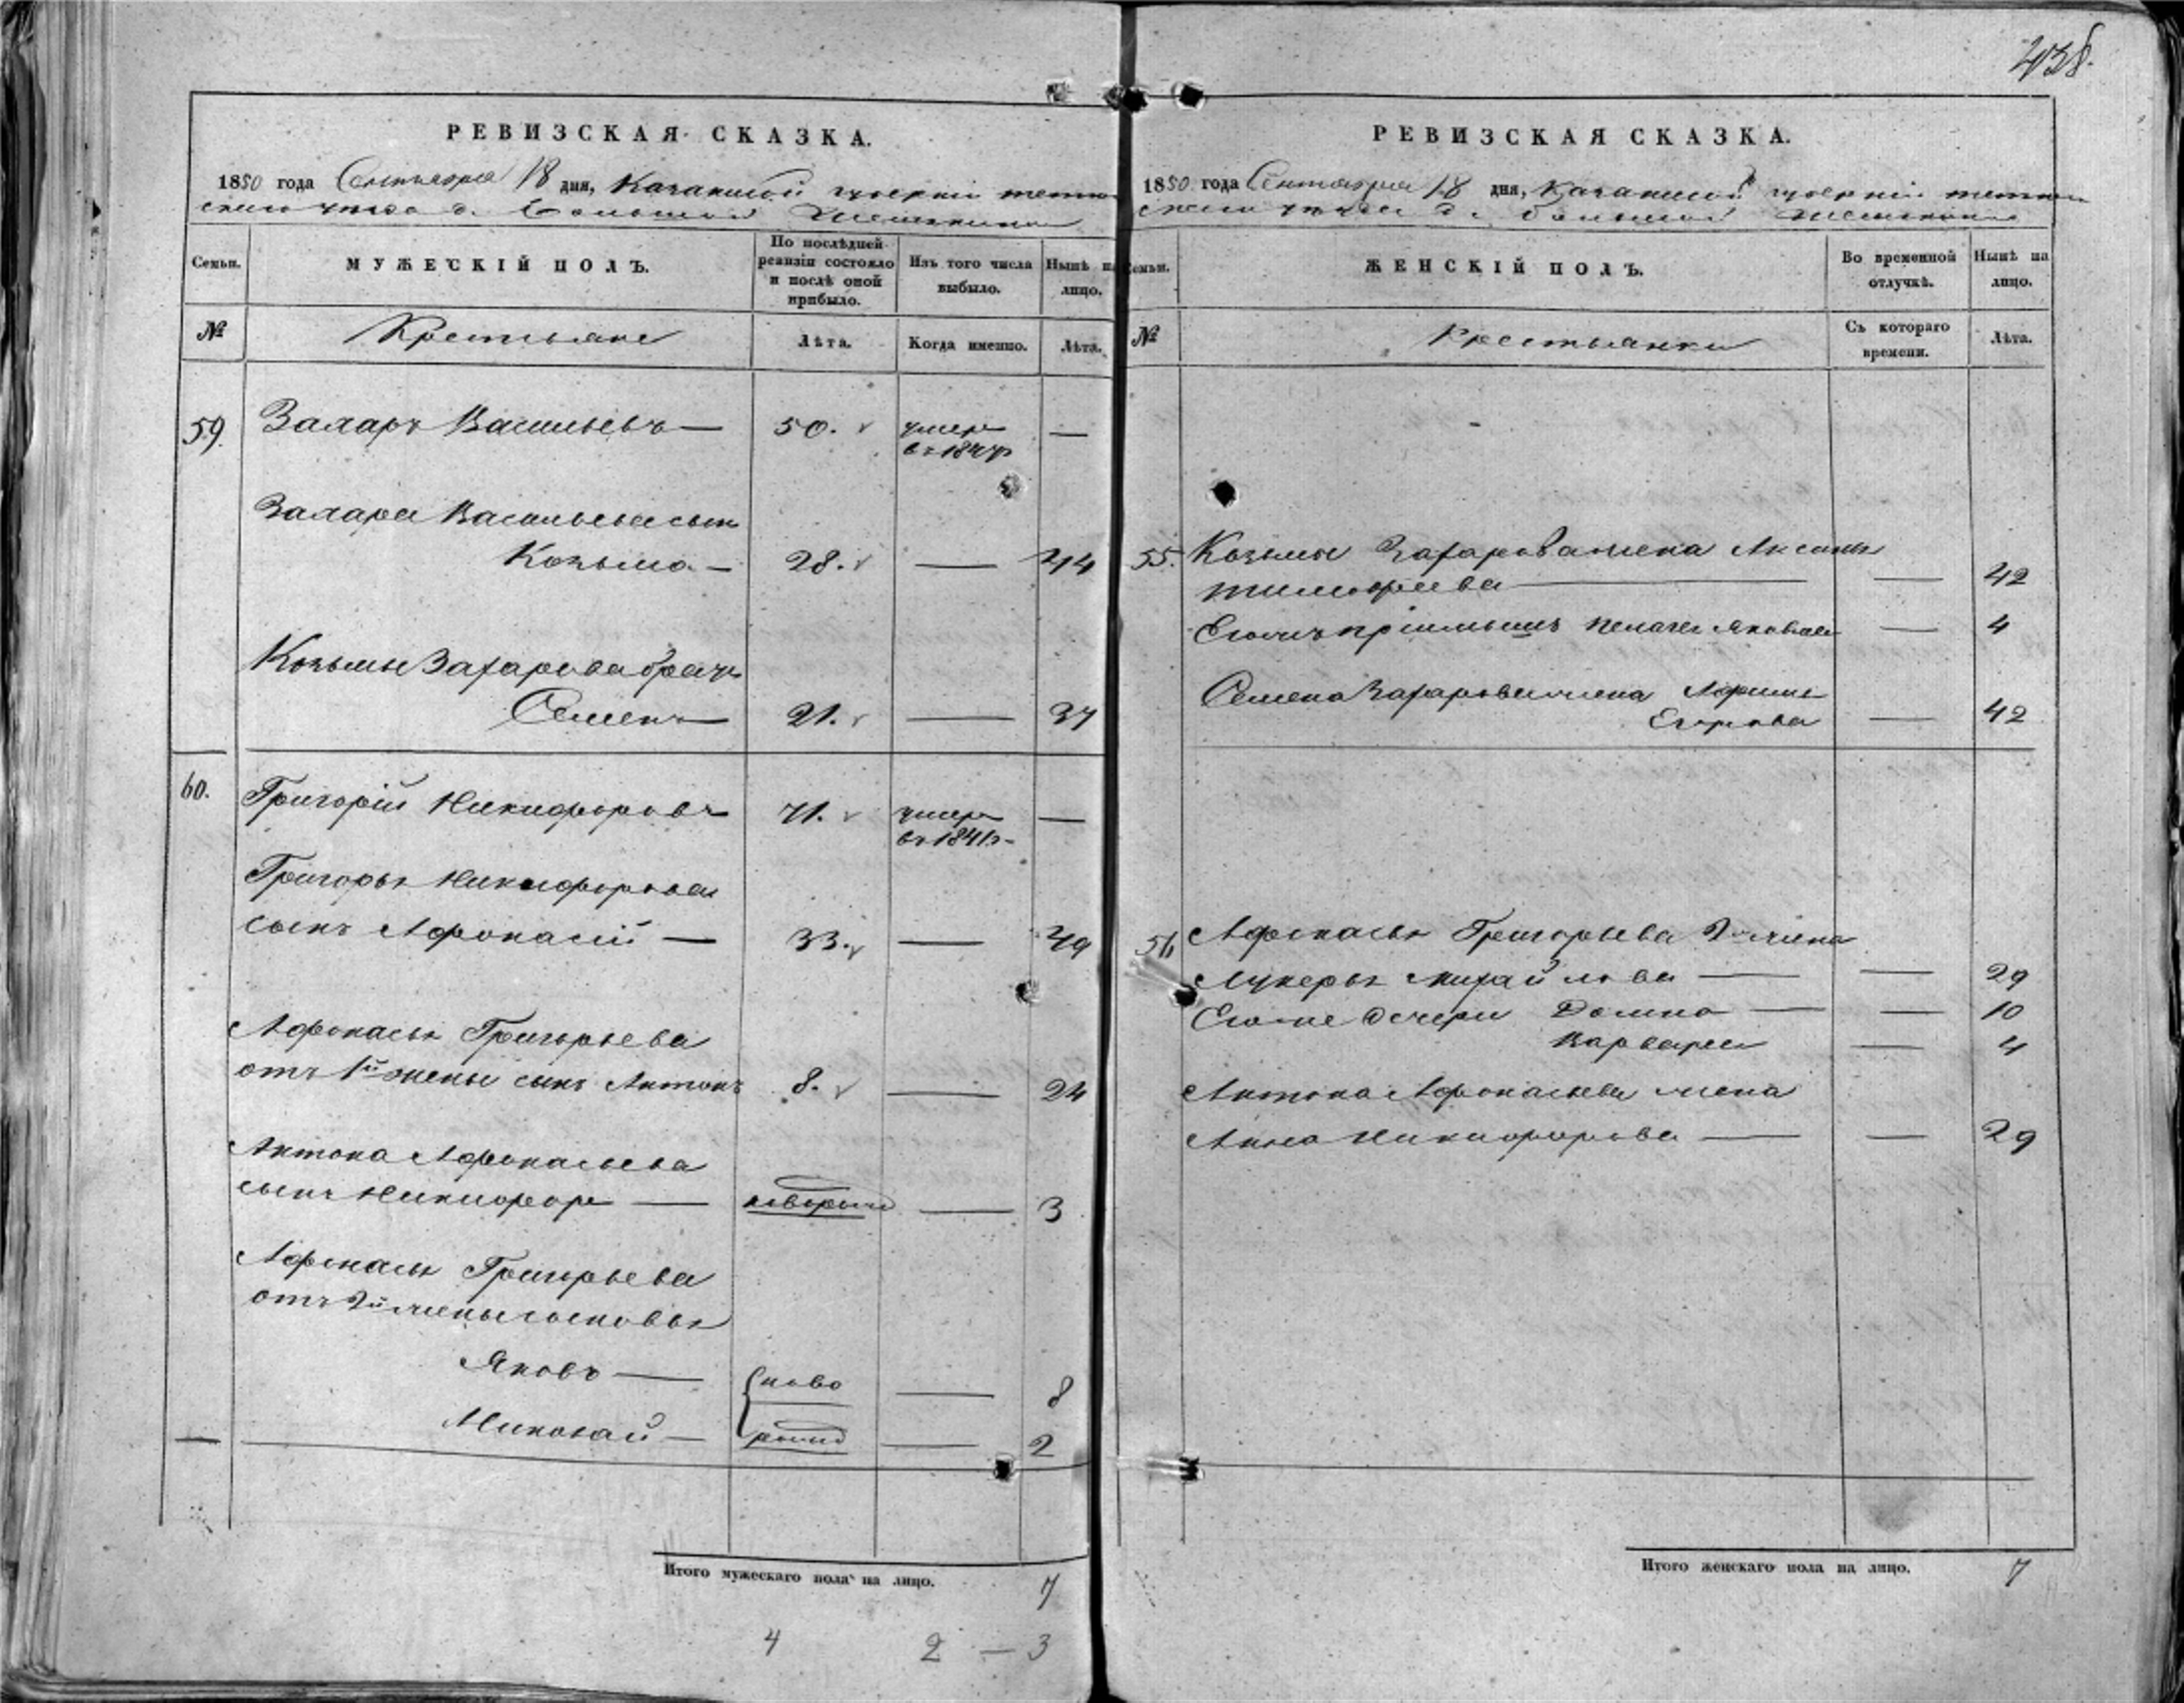 438.
РЕВИЗСКАЯ СКАЗКА.
1850 года Сентября 18 дня, Казанской губерніи тетю
скаго уезда д. Большой
Семьи.
МУЖЕСКІЙ ПОЛЪ.
По послѣдней ревизіи состояло и послѣ оной прибыло.
Изъ того числа выбыло.
Нынѣ на лицо.
№
Крестьяне
Лѣта.
Когда именно.
Лѣта.
59. Захаръ Васильевъ — 50. умеръ —
въ 1844г
Захара Васильева сынъ
Козьма — 28. — 44
Козьмы Захарова братъ
Семенъ — 21. — 37
60. Григорій Никифоровъ 71. умеръ —
въ 1841г
Григорья Никифорова
сынъ Афонасій — 33. — 49
Афонасья Григорьева
отъ 1й жены сынъ Антонъ 8. — 24
Антона Афонасьева
сынъ Никифоръ — новорож — 3
Афонасья Григорьева
отъ 2й жены сыновья
Яковъ — ново — 8
Николай — рожд — 2
Итого мужескаго пола на лицо. 7
4 2 — 3
РЕВИЗСКАЯ СКАЗКА.
1850 года Сентября 18 дня, Казанской губерніи тетю
скаго уезда д. большой
Семьи.
ЖЕНСКІЙ ПОЛЪ.
Во временной отлучкѣ.
Нынѣ на лицо.
№
Крестьянки
Съ котораго времени.
Лѣта.
55. Козьмы Захарова жена Аксинья
тимофеева — — 42
Его пріимышъ пелагея яковлева — 4
Семена Захарова жена
Егорова — 42
56 Афонасья Григорьева 2я жена
Лукерья михайлова — — 29
Его же дочери Домна — — 10
Варвара — 4
Антона Афонасьева жена
Анна Никифорова — — 29
Итого женскаго пола на лицо. 7